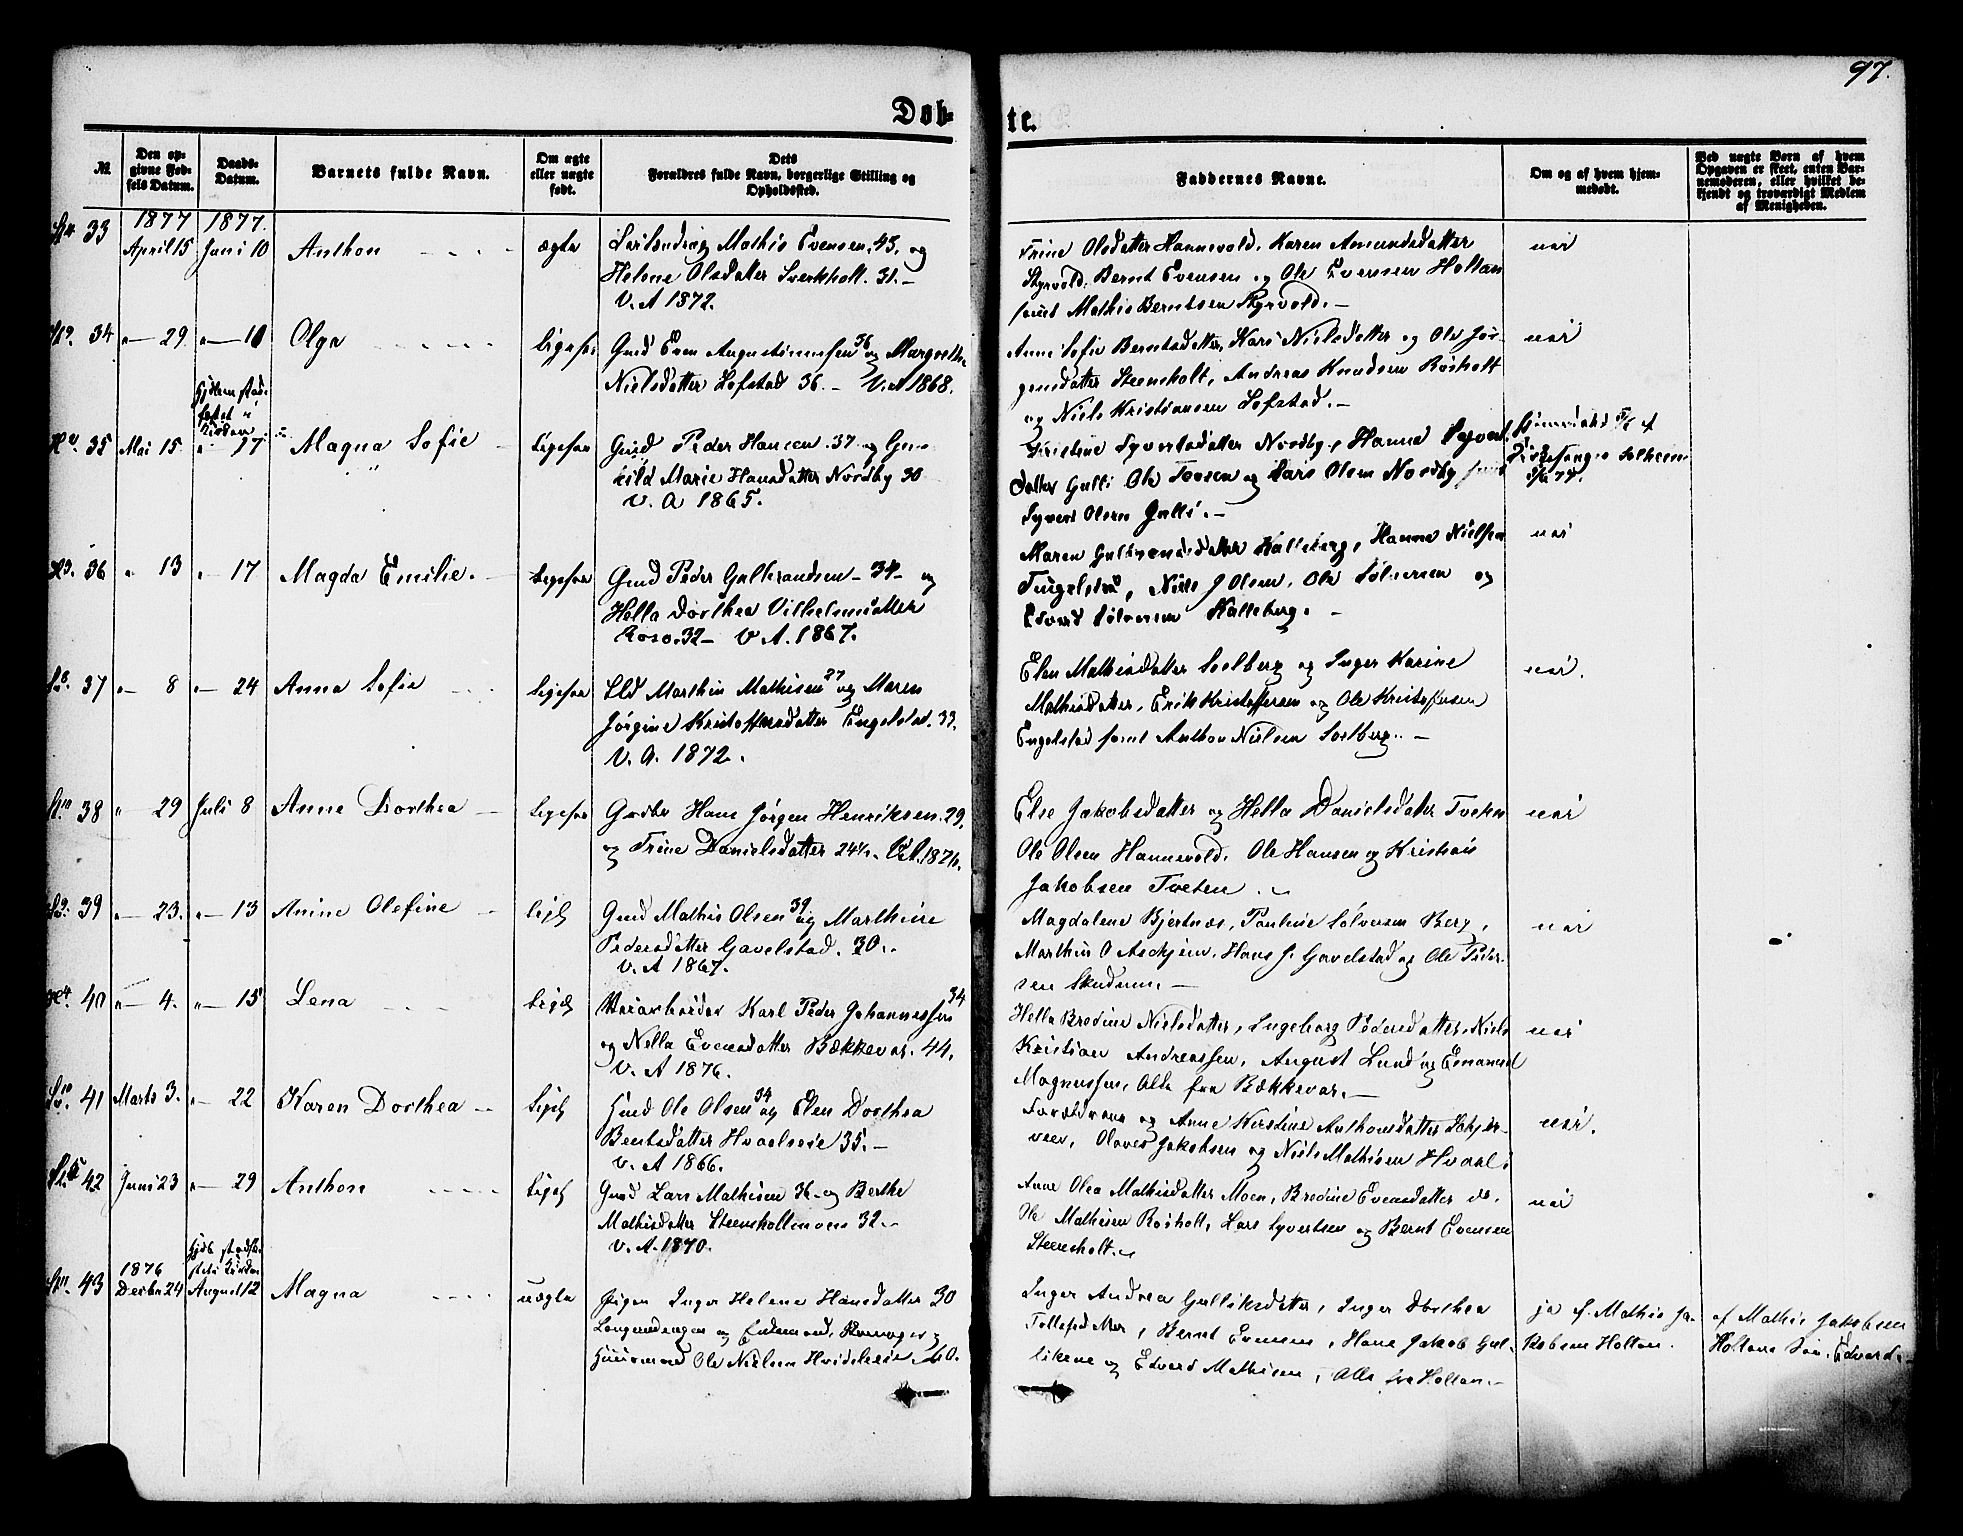 97.
Døb-
te.
№
Den op-
givne Fød-
sels Datum.
Daabs-
Datum.
Barnets fulde Navn.
Om ægte
eller uægte
født.
Dets
Forældres fulde Navn, borgerlige Stilling og
Opholdssted.
Faddernes Navne.
Om og af hvem hjem-
medøbt.
Ved uægte Børn af hvem
Opgaven er skeet, enten Bar-
nemoderen, eller hvilket be-
kjendt og troværdigt Medlem
af Menigheden.
33
1877
April 15
1877.
Juni 10
Anthon
ægte
Mathis Evensen 43. og
Helene Olsdatter Sverkholt. 31.-
V. A 1872.
Trine Olsdatter Hannevold. Karen Amundsdatter
Styrvold. Bernt Evensen og Ole Evensen Holtan
samt Mathis Berntsen Styrvold.-
nei
34
" - 29
" - 10
Olga
ligesaa
Gmd Even Augustinussen 36 og Margrethe
Nielsdatter Løfstad 36. - V. A 1868.
Anne Sofie Berntsdatter, Kari Nielsdatter og Ole Jør-
gensdatter Steensholt, Andreas Knudsen Rosholt
og Niels Kristiansen Løfstad.-
nei
35
Mai 15
17
Magna Sofie
ligesaa
Gmd Peder Hansen 37 og Gun-
hild Marie Hansdatter Nordby 30
V. A 1865.
Kristine Syvertsdatter Nordby, Hanna Syverts
datter Gulli Ole Torsen og Lars Olsen Nordby samt
Syvert Olsen Gulli.-
36
" 13
" - 17
Magda Emilie.-
ligesaa
Gmd Peder Gulbrandsen - 34 - og
Hella Dorthea Vilhelmsdatter
32 - V. A. 1867.
Maren Gulbrandsdatter Kalleberg, Hanna Nielsen
Tingelstad, Niels J Olsen, Ole Sølversen og
Edvard Sølversen Kalleberg.-
nei
37
" - 8
" - 24
Anna Sofie
ligesaa
Marthin Mathisen 27 og Maren
Jørgine Kristoffersdatter Engelstad. 33.
V. A. 1872.
Elen Mathisdatter Solberg og Inger Karine
Mathisdatter, Erik Kristoffersen og Ole Kristoffersen
Engelstad samt Anthon Nielsen Solberg.-
nei.
38
" 29
Juli 8
Anne Dorthea
ligesaa
Hans Jørgen Henriksen 29.
og Trine Danielsdatter 24½. V. A. 1876.
Else Jakobsdatter og Hella Danielsdatter Tveten
Ole Olsen Hannevold. Ole Hansen og Kristian
Jakobsen Tveten.-
nei
39
" - 23.
" - 13
Anine Olefine
Gmd Mathis Olsen 39 og Marthine
Pedersdatter Gavelstad. 30.-
V. A 1867.
Magdalene Bjertnæs, Pauline Sølversen Berg,
Marthin O Askjem. Hans J. Gavelstad og Ole Peder-
sen Skudum.-
nei
40
" - 4.
" - 15
Lena
Karl Peder Johannessen 34
og Nella Evensdatter Bækkevar. 44.
V. A 1876.
Hella Bredine Nielsdatter, Ingeborg Pedersdatter, Niels
Kristian Andreassen, August Lund og Emanuel
Magnussen, Alle fra Bækkevar.-
nei
41
Marts 3.
" - 22
Karen Dorthea
Gmd Ole Olsen 34 og Elen Dorthea
Berntsdatter Hvaalseie 35.-
V. A 1866.
Forældrene og Anne Kirstine Anthonsdatter
Olaves Jakobsen og Niels Mathisen Hvaal.
nei.
42
Juni 23
" - 29
Anthon
Gmd Lars Mathisen 36 - og Berthe
Mathisdatter Steensholtmoen 32.-
V. A. 1870.
Anne Olea Mathisdatter Moen, Bredine Evensdatter do.
Ole Mathisen Rosholt, Lars Syvertsen og Bernt Evensen
Steensholt.-
nei
43
1876
Decbr 24
August 12
Magna
uægte
Pigen Inger Helene Hansdatter 30
Ole Nielsen Hvidsteen 40.
Inger Andrea Gulliksdatter, Inger Dorthea
Tollefsdatter, Bernt Evensen, Hans Jakob Gul-
liksen og Edvard Mathisen, Alle fra Holtan.-
ja af Mathis Ja-
kobsen Holtan.
af Mathis Jakobsen
Holtans Søn. Edvard.-